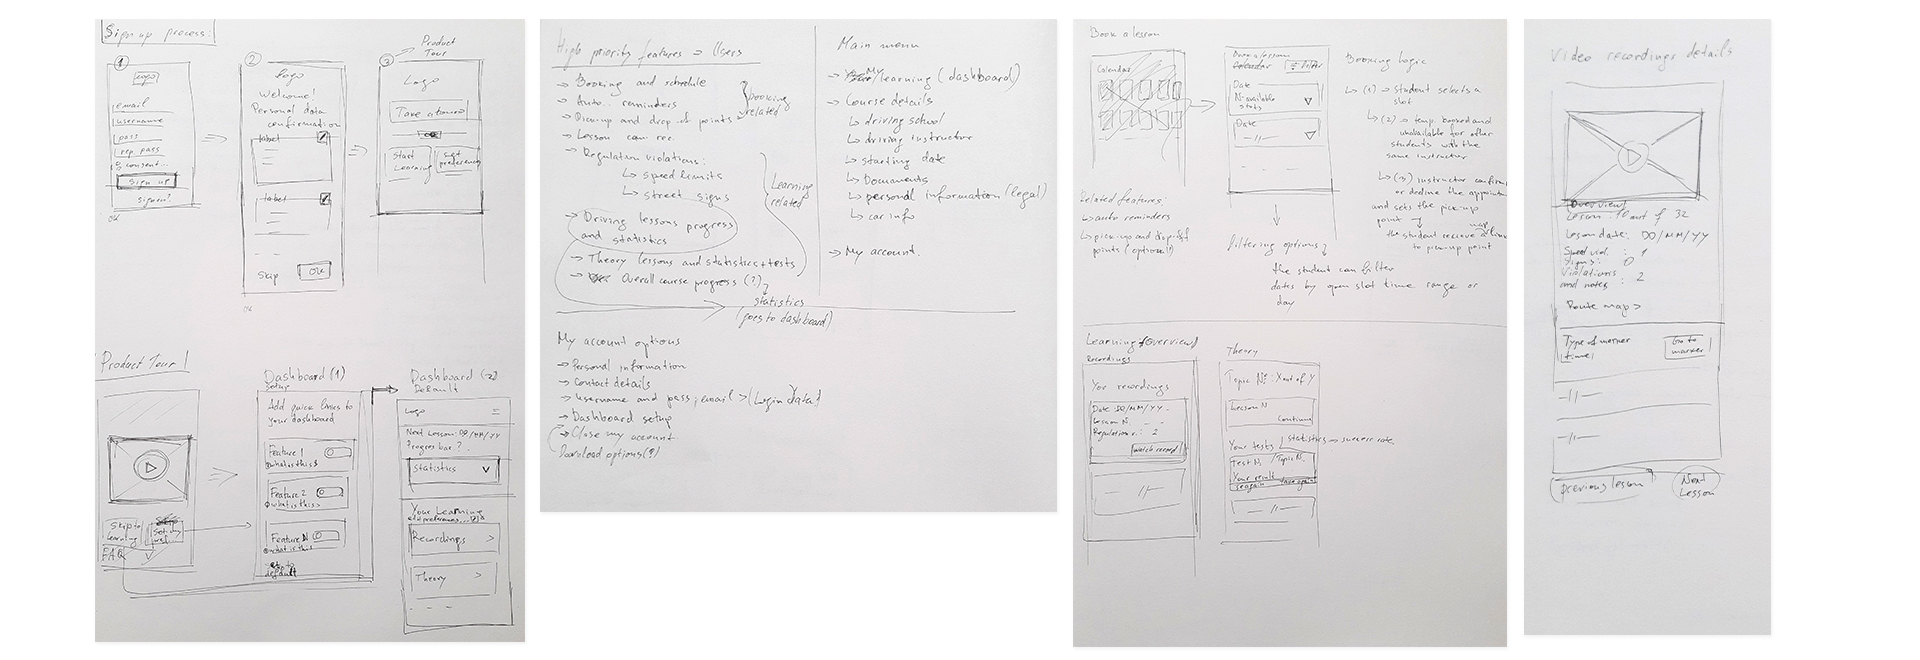 Sign up process:
1
Logo
email
username
pass
rep. pass
consent...
Sign up
Signin?
OK
2
Logo
Welcome!
Personal data
confirmation
label
label
Skip
OK
OK
3
Product
Tour
Logo
Take a tour
OR
Start
Learning
Set
preferences
Product Tour
Skip to
learning
Set
FAQ
Dashboard (1)
Setup
Add quick links to
your dashboard
Feature 1
what is this
Feature 2
what is this
Feature N
what is this
default
Dashboard (2)
Default
Logo
Next Lesson: DD/MM/YY
Progress bar?
Statistics
Your Learning
Recordings >
Theory >
High priority features → Users
→ Booking and schedule
→ Auto. reminders
→ Pick-up and drop of points
booking
related
→ Lesson cam rec.
→ Regulation violations:
↳ Speed limits
↳ Street signs
Learning
related
→ Driving lessons progress
and statistics
→ Theory lessons and statistics + tests
→ Overall course progress (?)
↳ statistics
(goes to dashboard)
Main menu
→ My learning (dashboard)
→ Course details
↳ driving school
↳ driving instructor
↳ starting date
↳ Documents
↳ personal information (legal)
↳ car info
→ My account
My account options
→ Personal information
→ Contact details
→ Username and pass; email > (Login data)
→ Dashboard setup
→ Close my account
Download options (?)
Book a lesson
Calendar
Book a lesson
Calendar
Filter
Date
N: available
slots
Date
-11-
Booking logic
↳ (1) → student selects a
slot
↳ (2) → temp. booked and
unavailable for other
students with the
same instructor
↳ (3) instructor confirm
or decline the appointm
and sets the pick-up
point
the student receive a
map
link
to pick-up point
Related features:
↳ auto reminders
↳ pick-up and drop-off
points (optional)
Filtering options
the student can filter
dates by open slot time range or
day
Learning (Overview)
Recordings
Your recordings
Date: DD/MM/YY
Lesson N.
Regulation v.: 2
Watch record
-11-
Theory
Topic N: X out of Y
Lesson N
Continue
Your tests
statistics → success rate
Test N / Topic N.
Your result
-11-
Video recordings details
Overview
Lesson: 10 out of 32
Lesson date: DD/MM/YY
Speed viol.: 1
Signs: 0
Violations
and notes: 2
Route map >
Type of marker
time
Go to
marker
-11-
-11-
previous lesson
Next
Lesson